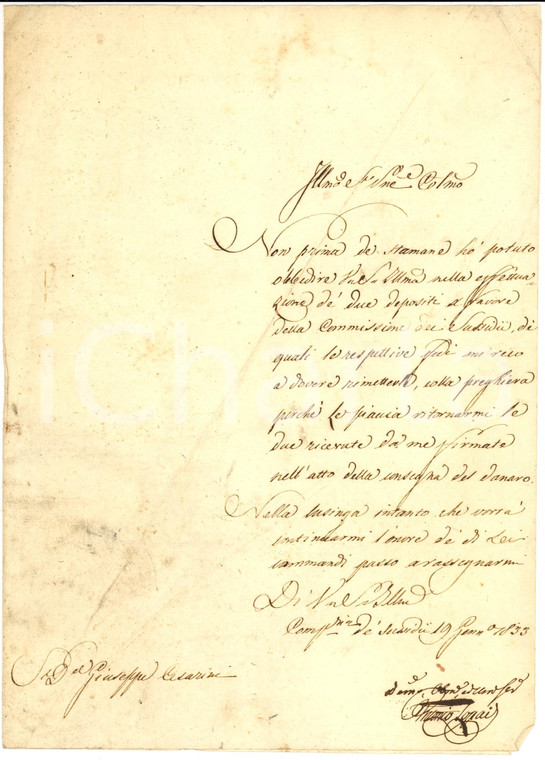 Illmo e Sr Pne Colmo
Non prima de stamane ho potuto
obbedire V. S. Illma nella effettua-
zione de' due depositi a favore
della Commissione dei Sussidii, de
quali le respettive fedi mi reco
a dovere rimetterle, colla preghiera
perchè Le piaccia ritornarmi le
due ricevute da me firmate
nell'atto della consegna del danaro.
Nella lusinga intanto che vorrà
continuarmi l'onore de di Lei
commandi passo a rassegnarmi
Di V. S. Illma
19 Genno 1833
Giuseppe Cesarini